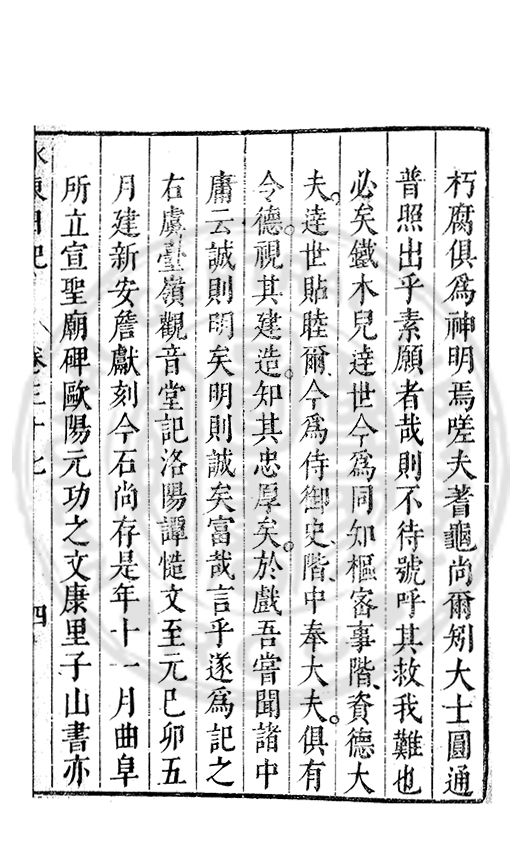 朽腐俱爲神明焉嗟夫蓍龜尚爾矧大士圓通
普照出乎素願者哉則不待號呼其救我難也
必矣鐵木兒達世今爲同知樞宻事階資德大
夫達世貼睦爾今爲侍御史階中奉大夫俱有
令德視其建造知其忠厚矣於戲吾嘗聞諸中
庸云誠則明矣明則誠矣富哉言乎遂爲記之
右虞臺嶺觀音堂記洛陽譚慥文至元已卯五
月建新安詹獻刻今石尚存是年十一月曲阜
所立宣聖廟碑歐陽元功之文康里子山書亦
水東日記 卷三十七 四